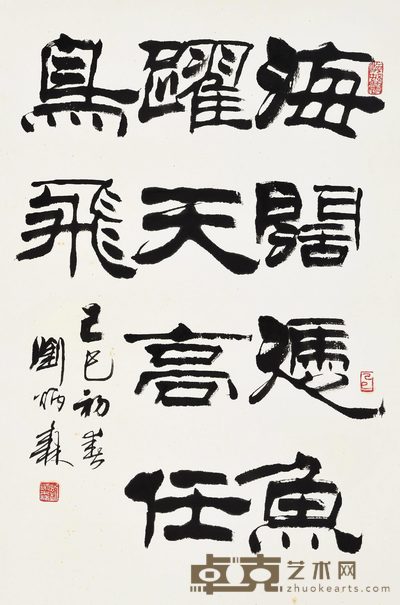 海闊憑魚
躍天高任
鳥飛
己巳初春
劉炳森
卓克艺术网
zhuokearts.com